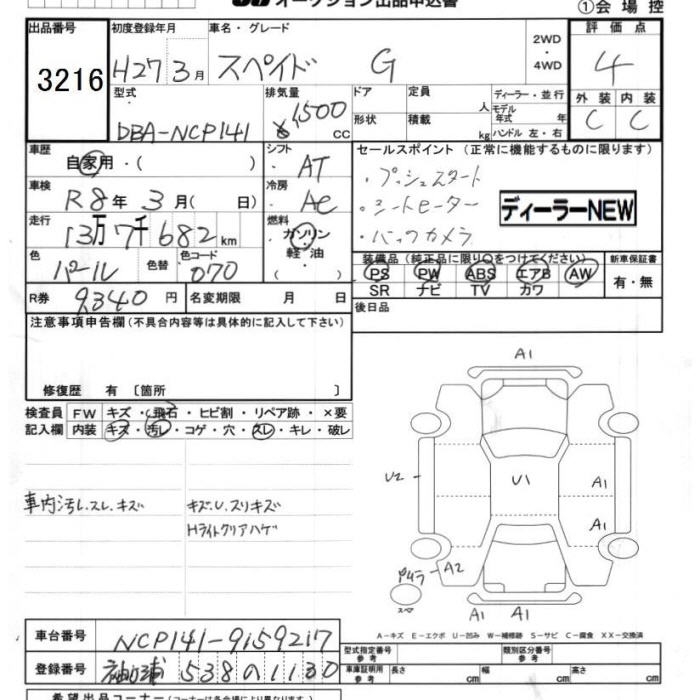 オークション出品申込書
①会場控
出品番号 3216
初度登録年月 H27 3月
車名・グレード スペイド G
2WD・4WD
評価点 4
外装 C 内装 C
型式 DBA-NCP141
排気量 1500 cc
ドア 形状
定員 人 積載 kg
ディーラー・並行
モデル年式 年
ハンドル 左・右
車歴 自家用・( )
シフト AT
セールスポイント (正常に機能するものに限ります)
・プッシュスタート
・シートヒーター
・バックカメラ
ディーラーNEW
車検 R8年 3月( 日)
冷房 AC
走行 13万7千682km
燃料 ガソリン・軽油 ( )
色 パール 色替 色コード 070
装備品(純正品に限り○をつけてください)
PS PW ABS エアB AW
SR ナビ TV カワ
新車保証書 有・無
R券 9340円 名変期限 月 日
後日品
注意事項申告欄(不具合内容等は具体的に記入して下さい)
修復歴 有〔箇所 〕
検査員記入欄
FW キズ・飛石・ヒビ割・リペア跡・×要
内装 キズ・汚レ・コゲ・穴・スレ・キレ・破レ
車内汚レ.スレ.キズ
キズ.U.スリキズ
Hライトクリアハゲ
A1
U2 U1 A1
A1
A2
スペア
A1 A1
A-キズ E-エクボ U-凹み W-補修跡 S-サビ C-腐食 XX-交換済
車台番号 NCP141-9159217
登録番号 袖ヶ浦 538 の 1130
型式指定番号 参考
類別区分番号 参考
車庫証明用 参考 長さ cm 幅 cm 高さ cm
希望出品コーナー(コーナーは各会場により異なります)